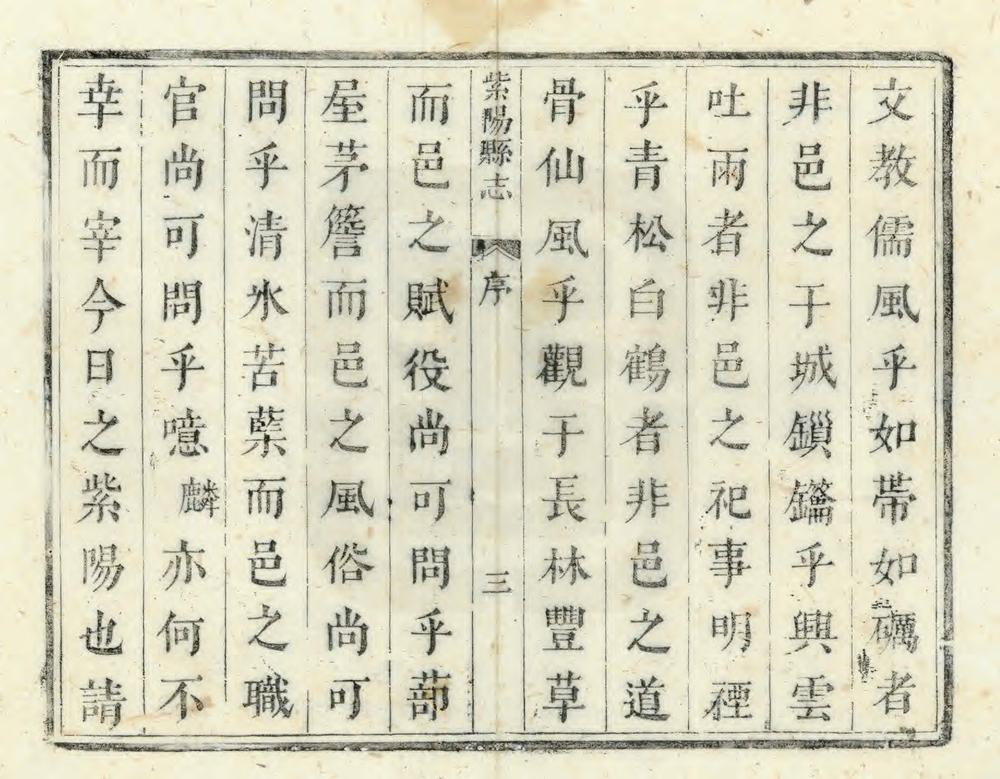 文教儒風乎如帶如礪者
非邑之干城鎖鑰乎興雲
吐雨者非邑之祀事明禋
乎青松白鶴者非邑之道
骨仙風乎觀于長林豐草
紫陽縣志 序 三
而邑之賦役尚可問乎蔀
屋茅簷而邑之風俗尚可
問乎清氷苦蘖而邑之職
官尚可問乎噫麟亦何不
幸而宰今日之紫陽也請